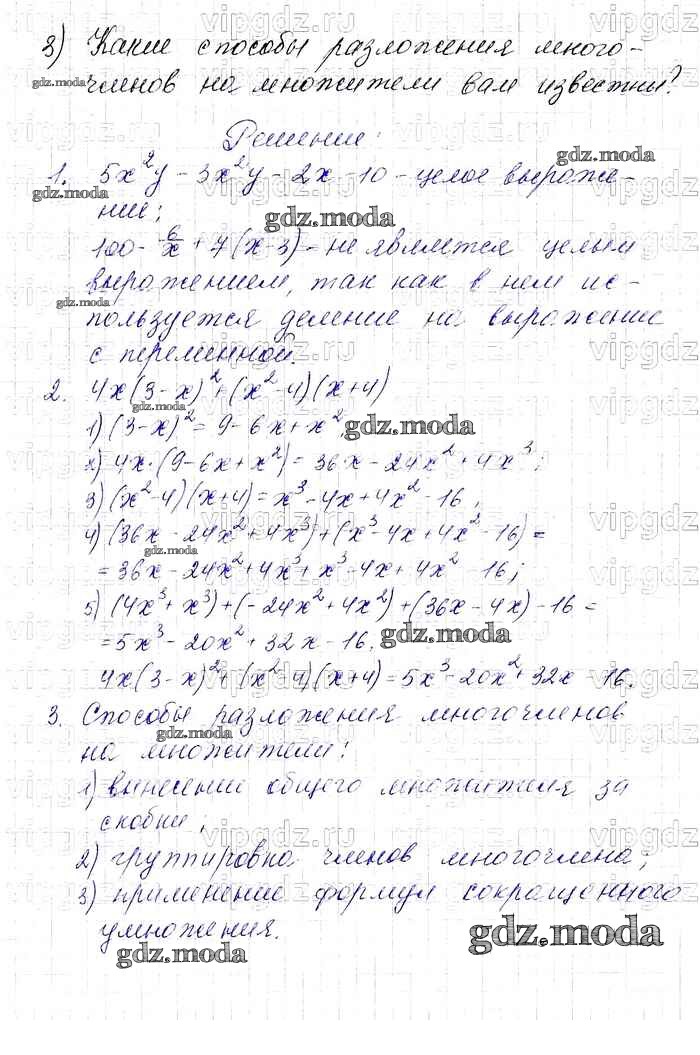 3) Какие способы разложения много-
членов на множители вам известны?
Решение:
1. 5x²y - 3x²y - 2x - 10 - целое выраже-
ние;
100 - 6/x + 7(x-3) - не является целым
выражением, так как в нем ис-
пользуется деление на выражение
с переменной.
2. 4x(3-x)² + (x²-4)(x+4)
1) (3-x)² = 9 - 6x + x²,
2) 4x·(9-6x+x²) = 36x - 24x² + 4x³;
3) (x²-4)(x+4) = x³ - 4x + 4x² - 16;
4) (36x - 24x² + 4x³) + (x³ - 4x + 4x² - 16) =
= 36x - 24x² + 4x³ + x³ - 4x + 4x² - 16;
5) (4x³ + x³) + (-24x² + 4x²) + (36x - 4x) - 16 =
= 5x³ - 20x² + 32x - 16.
4x(3-x)² + (x²-4)(x+4) = 5x³ - 20x² + 32x - 16.
3. Способы разложения многочленов
на множители:
1) вынесение общего множителя за
скобки;
2) группировка членов многочлена;
3) применение формул сокращенного
умножения.
gdz.moda